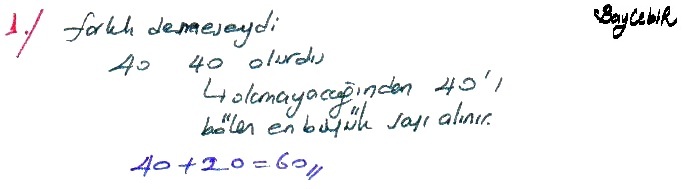 BayCebiR
1./ farklı demeseydi
40 40 olurdu
↳ olamayacağından 40'ı
bölen en büyük sayı alınır.
40+20=60//